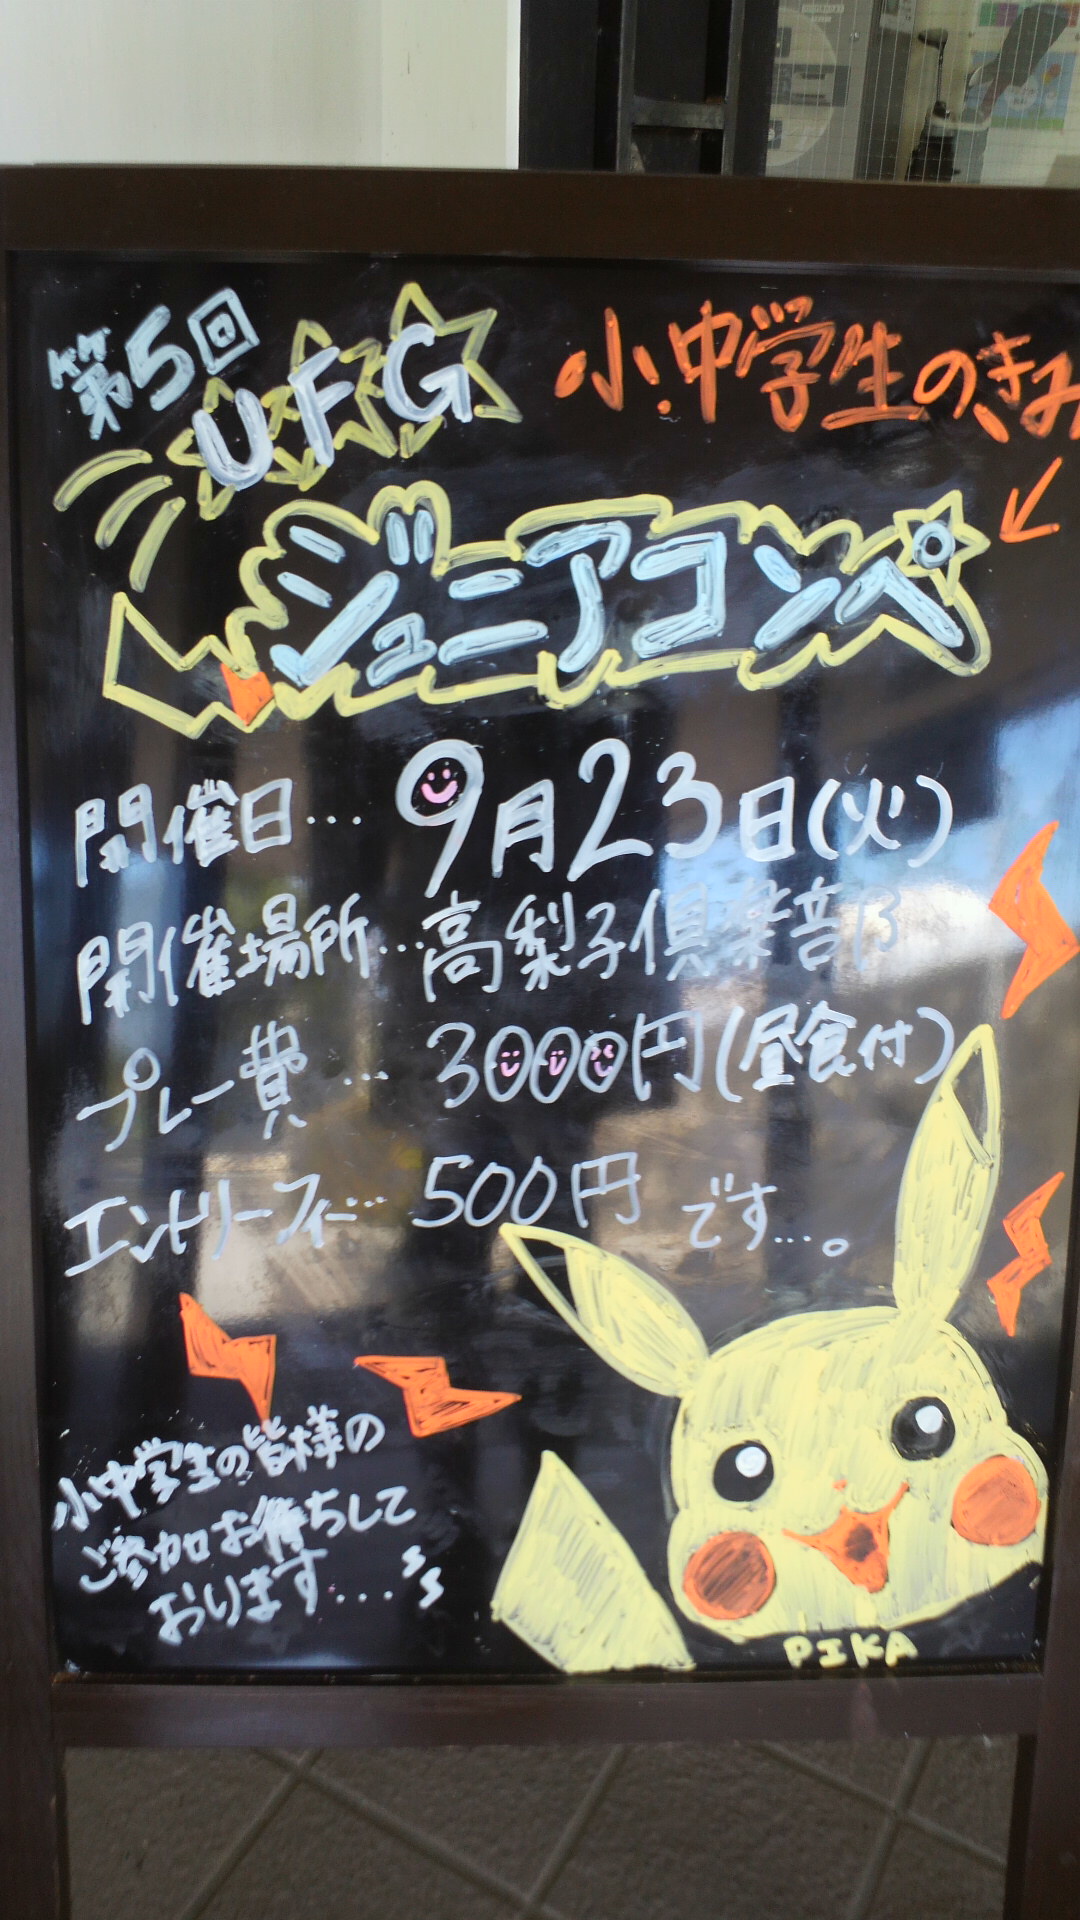 第5回
UFG
小中学生のきみ
ジュニアコンペ
開催日…9月23日(火)
開催場所…高梨子倶楽部
プレー費…3000円(昼食付)
エントリーフィー…500円です…。
小中学生の皆様の
ご参加お待ちして
おります....
PIKA